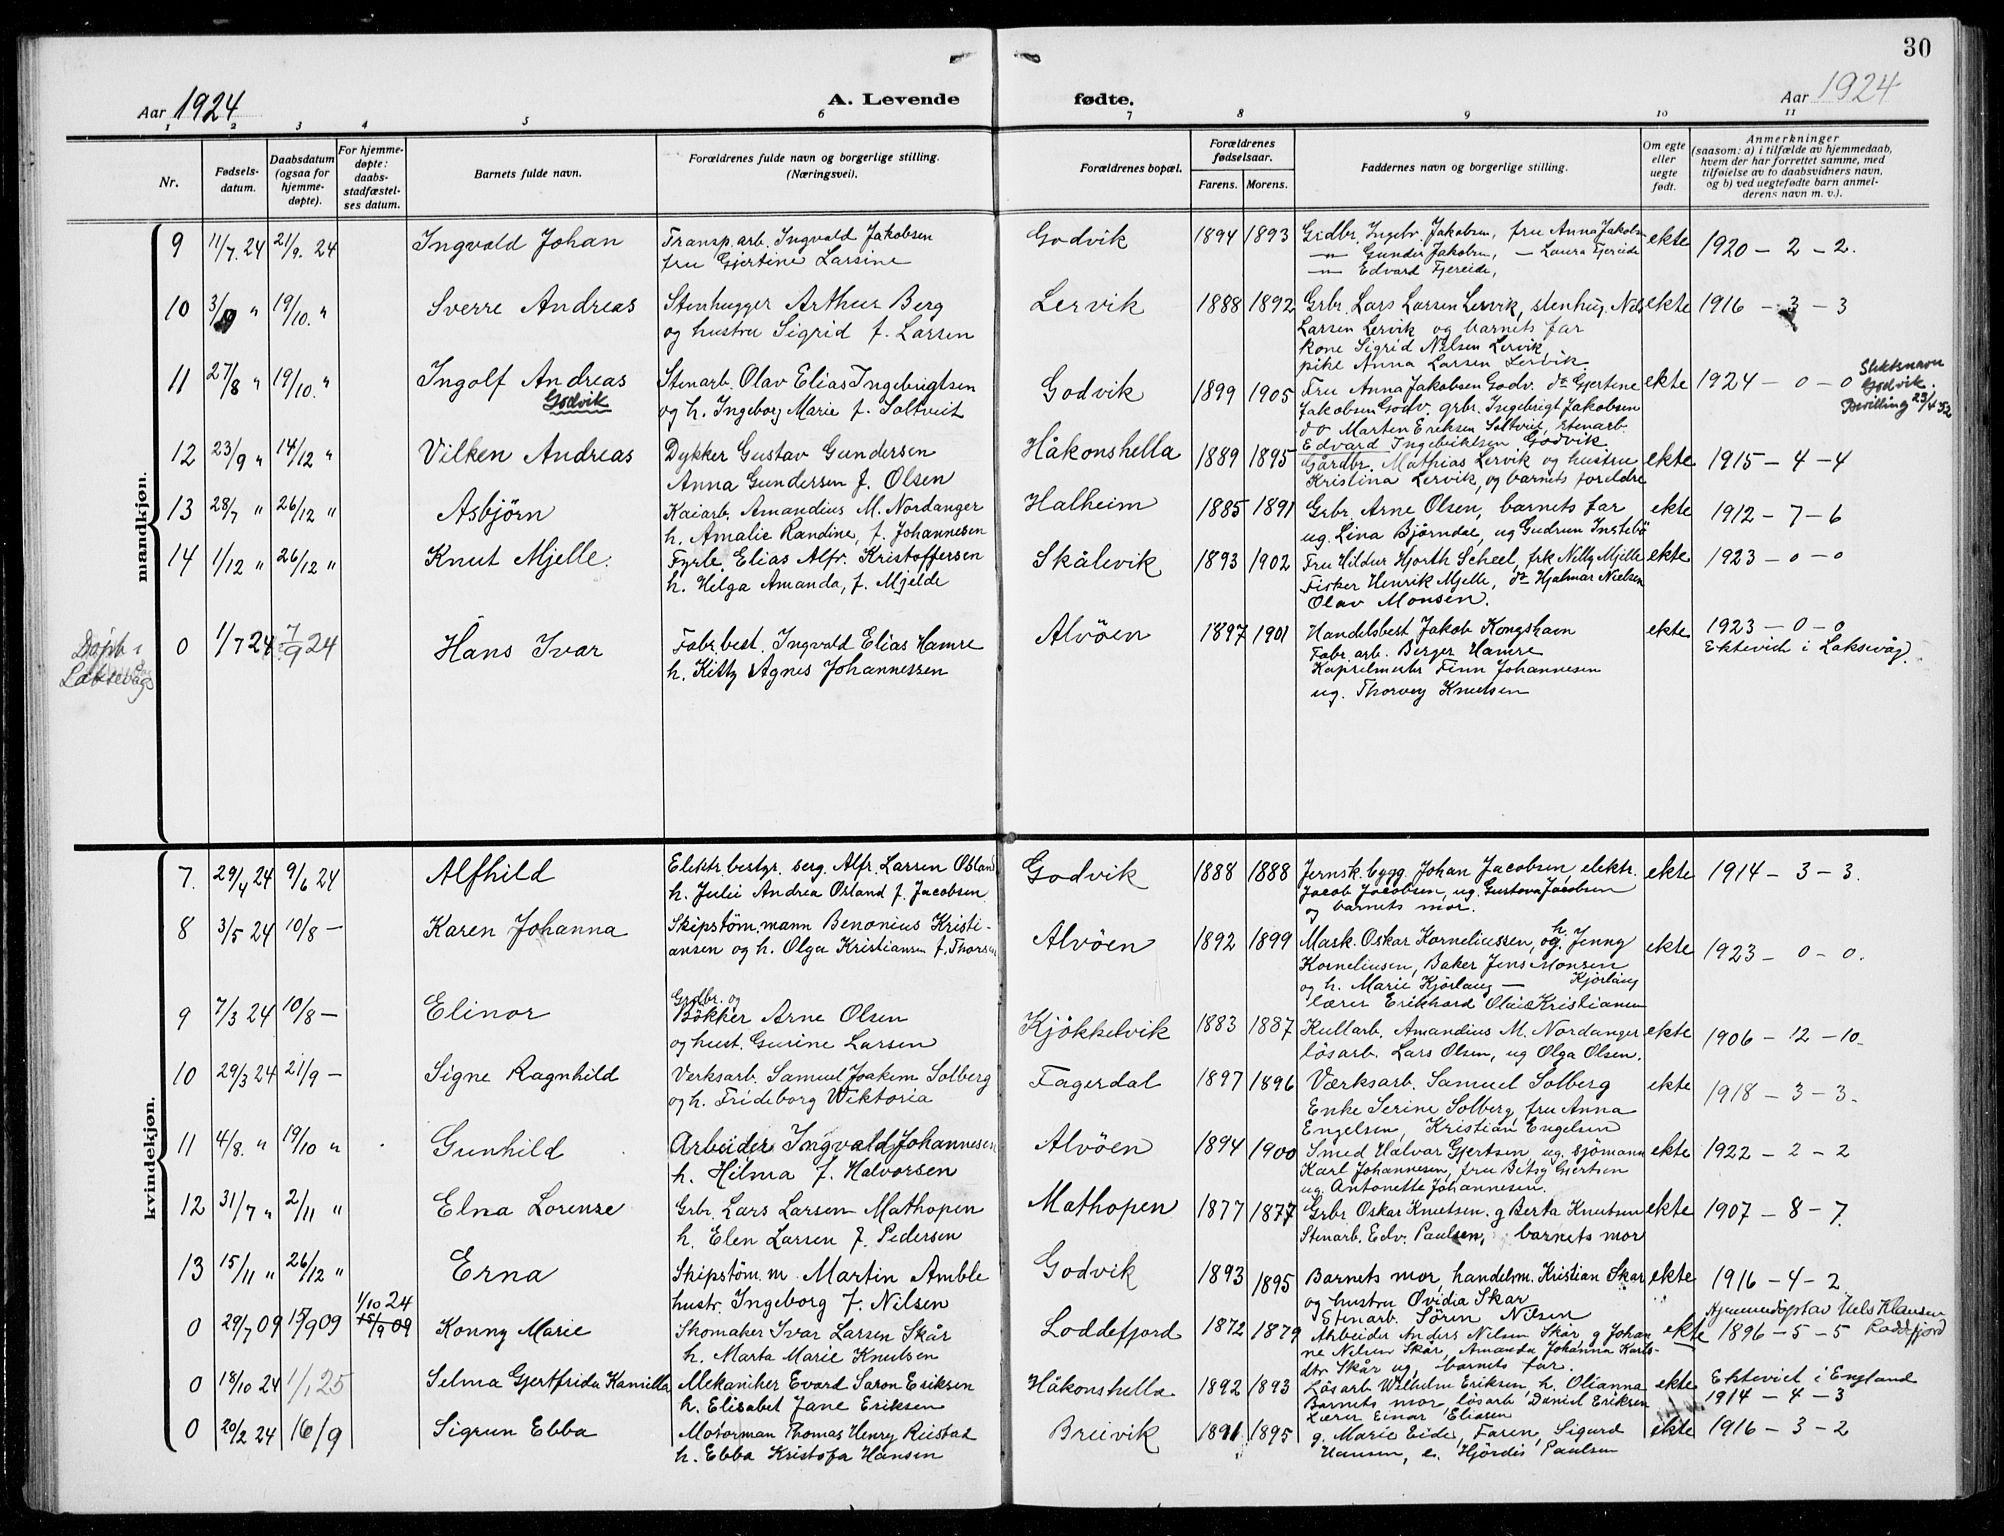 30
Aar 1924
A. Levende fødte.
Aar 1924
1 2 3 4 5 6 7 8 9 10 11
Nr.
Fødsels-
datum.
Daabsdatum
(ogsaa for
hjemme-
døpte).
For hjemme-
døpte:
daabs-
stadfæstel-
ses datum.
Barnets fulde navn.
Forældrenes fulde navn og borgerlige stilling.
(Næringsvei).
Forældrenes bopæl.
Forældrenes
fødselsaar.
Farens. Morens.
Faddernes navn og borgerlige stilling.
Om egte
eller
uegte
født.
Anmerkninger
(saasom: a) i tilfælde av hjemmedaab,
hvem der har forrettet samme, med
tilføielse av to daabsvidners navn,
og b) ved uegtefødte barn anmel-
derens navn m. v.).
mandkjøn.
9 11/7. 24 21/9. 24 Ingvald Johan
Transp. arb. Ingvald Jakobsen
fru Gjertine Larsine
Godvik 1894 1893
Gidbr. Ingebr. Jakobsen, fru Anna Jakobs
— " — Gunder Jakobsen, — Laura Fjereide
— " — Edvard Fjereide,
ekte 1920 - 2 - 2.
10 3/8 " 19/10. " Sverre Andreas
Stenhugger Arthur Berg
og hustru Sigrid f. Larsen
Lervik 1888 1892
Grbr. Lars Larsen Lervik, stenhug. Nils
Larsen Lervik og barnets far
kone Sigrid Nilsen Lervik
pike Anna Larsen Lervik
ekte 1916 - 3 - 3
11 27/8 " 19/10. " Ingolf Andreas
Godvik
Stenarb. Olav Elias Ingebrigtsen
og h. Ingeborg Marie f. Soltveit
Godvik 1899 1905
Fru Anna Jakobsen Godv. do Gjertine
Jakobsen Godv. grbr. Ingebrigt Jakobsen
do Marten Eriksen Soltveit, stenarb.
Edvard Ingebriktsen Godvik
ekte 1924 - 0 - 0
Slektsnavn
Godvik.
Bevilling 23/4 52
12 23/9 " 14/12 " Vilken Andreas
Dykker Gustav Gundersen
Anna Gundersen f. Olsen
Håkonshella 1889 1895
Gårdbr. Mathias Lervik og hustru
Kristina Lervik, og barnets foreldre
ekte 1915 - 4 - 4
13 28/7 " 26/12 " Asbjörn
Kaiarb. Amandius M. Nordanger
h. Amalie Randine, f. Johannesen
Halheim 1885 1891
Grbr. Arne Olsen, barnets far
ug. Lina Björndal, ug Gudrun Instebö
ekte 1912 - 7 - 6
14 1/12 " 26/12 " Knut Mjelle.
Fyrb. Elias Alfr. Kristoffersen
h. Helga Amanda, f. Mjelde
Skålevik 1893 1902
Fru Hildur Hjorth Scheel, frk Nelly Mjelle
Fisker Henrik Mjelle, do Hjalmar Nielsen
Olav Monsen.
ekte 1923 - 0 - 0
Døpt i
Laksevåg
0 1/7 24 7/9 24 Hans Ivar
Fabr. best. Ingvald Elias Hamre
h. Kitty Agnes Johannessen
Alvöen 1897 1901
Handelsbest Jakob Kongshavn
Fabr. arb. Berger Hamre
Finn Johannesen
ug. Thorvey Knutsen
ekte 1923 - 0 - 0
Ektevied i Laksevåg.
kvindekjøn.
7. 29/4 24 9/6 24 Alfhild
Elektr. bestyr. berg. Alfr. Larsen Osland
h. Julie Andrea Osland f. Jacobsen
Godvik 1888 1888
Jernsk. bygg. Johan Jacobsen, elektr.
Jacob Jacobsen, ug. Gustava Jacobsen
og barnets mor.
ekte 1914 - 3 - 3.
8 3/5 24 10/8 — Karen Johanna
Skipstöm. mann Benonius Kristi-
ansen og h. Olga Kristiansen f. Thorsen
Alvöen 1892 1899
Mask. Oskar Korneliussen, og h. Jenny
Korneliusen, Baker Jens Monsen
og h. Marie Kjörlaug — Kjörlaug
lærer Erikhard Olai Kristiansen
ekte 1923 - 0 - 0.
9 7/3 24 10/8 — Elinor
Grdbr. og
Bökker Arne Olsen
og hust. Gurine Larsen
Kjökkelvik 1883 1887
Kullarb. Amandius M. Nordanger
lösarb. Lars Olsen, ug Olga Olsen.
ekte 1906 - 12 - 10.
10 29/3 24 21/9 — Signe Ragnhild
Verksarb. Samuel Joakim Solberg
og h. Frideborg Wiktoria
Fagerdal 1897 1896
Værksarb. Samuel Solberg
Enke Serine Solberg, fru Anna
Engelsen, Kristian Engelsen
ekte 1918 - 3 - 3.
11 4/8. " 19/10 " Gunhild
Arbeider Ingvald Johannesen
h. Hilma f. Halvorsen
Alvöen 1894 1900
Smed Halvar Gjertsen, ug. sjömann
Karl Johannesen, fru Betsy Gjertsen
ug. Antonette Johannesen.
ekte 1922 - 2 - 2
12 31/7 " 2/11 " Elna Lorenze
Grbr. Lars Larsen Mathopen
h. Elen Larsen f. Pedersen
Mathopen 1877 1877
Grbr Oskar Knutsen. g Berta Knutsen
Stenarb. Edv. Paulsen, barnets mor
ekte 1907 - 8 - 7.
13 15/11 " 26/12 " Erna
Skipstöm. m Martin Amble
hustr. Ingeborg f. Nilsen
Godvik 1893 1895
Barnets mor, handelsm. Kristian Skar
og hustru Ovidia Skar
Stenarb. Sören Nilsen
ekte 1916 - 4 - 2
0 29/7 09 15/9 09 1/10 24 15/9 09 Konny Marie
Skomaker Ivar Larsen Skår
h. Marta Marie Knutsen
Loddefjord 1872 1879
Arbeider Anders Nilsen Skår, g Johan
ne Nelsen Skår, Amanda Johanna Karls-
dtr Skår ug, barnets far.
ekte 1896 - 5 - 5
Hjemmedöpt av Nels Klausen
Loddefjord
0 18/10 24 1/1 25 Selma Gjertfrida Kamilla
Mekaniker Evard Saron Eriksen
h. Elisabet Jane Eriksen
Håkonshella 1892 1893
Lösarb Wilhelm Eriksen, h. Olianna
Barnets mor, lösarb Daniel Eriksen
Lærer Einar Eliasen
ekte Ektevied i England
1914 - 4 - 3
0 20/2 24 16/9 Sigrun Ebba
Motorman Thomas Henry Reistad
h. Ebba Kristofa Hansen
Breivik 1891 1895
g. Marie Eide, Faren, Sigurd
Hansen, e. Hjördis Paulsen
ekte 1916 - 3 - 2